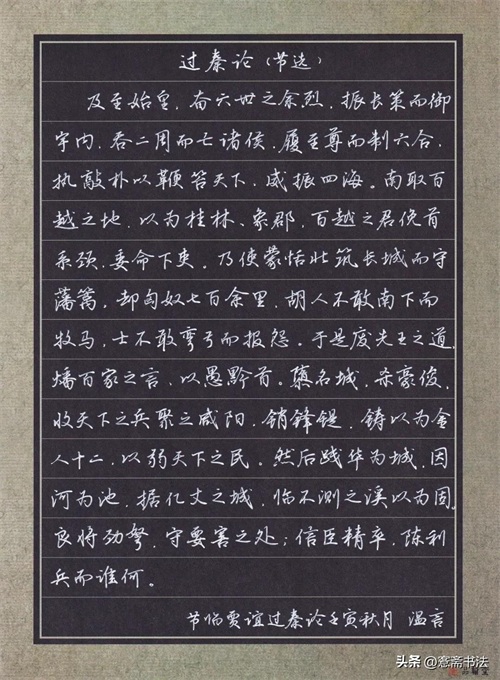 过秦论（节选）
及至始皇，奋六世之余烈，振长策而御
宇内，吞二周而亡诸侯，履至尊而制六合，
执敲朴以鞭笞天下，威振四海。南取百
越之地，以为桂林、象郡，百越之君俛首
系颈，委命下吏。乃使蒙恬北筑长城而守
藩篱，却匈奴七百余里，胡人不敢南下而
牧马，士不敢弯弓而报怨。于是废先王之道，
燔百家之言，以愚黔首。隳名城，杀豪俊，
收天下之兵聚之咸阳，销锋鍉，铸以为金
人十二，以弱天下之民。然后践华为城，因
河为池，据亿丈之城，临不测之溪以为固。
良将劲弩，守要害之处；信臣精卒，陈利
兵而谁何。
节临贾谊过秦论壬寅秋月 温言
头条@窓斋书法